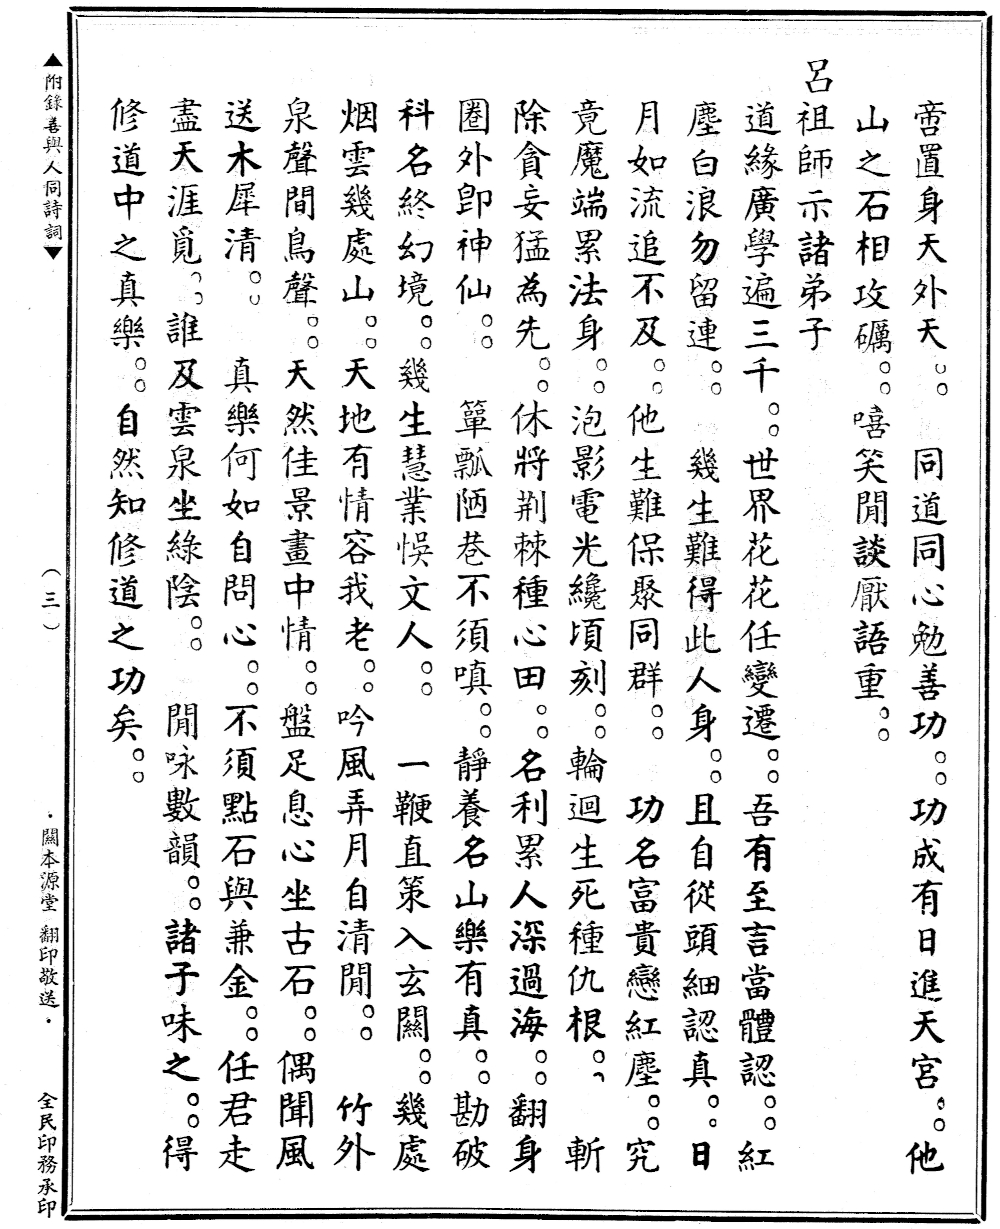 啻置身天外天。同道同心勉善功。功成有日進天宮。他
山之石相攻礪。嘻笑閒談厭語重。
呂祖師示諸弟子
道緣廣學遍三千。世界花花任變遷。吾有至言當體認。紅
塵白浪勿留連。幾生難得此人身。且自從頭細認真。日
月如流追不及。他生難保聚同群。功名富貴戀紅塵。究
竟魔端累法身。泡影電光纔頃刻。輪迴生死種仇根。斬
除貪妄猛為先。休將荆棘種心田。名利累人深過海。翻身
圈外卽神仙。簞瓢陋巷不須嗔。靜養名山樂有真。勘破
科名終幻境。幾生慧業悞文人。一鞭直策入玄關。幾處
烟雲幾處山。天地有情容我老。吟風弄月自清閒。竹外
泉聲間鳥聲。天然佳景畫中情。盤足息心坐古石。偶聞風
送木犀清。真樂何如自問心。不須點石與兼金。任君走
盡天涯覓。誰及雲泉坐綠陰。閒咏數韻。諸子味之。得
修道中之真樂。自然知修道之功矣。
▲附錄善與人同詩詞▼
（三）
·關本源堂 翻印敬送·
全民印務承印